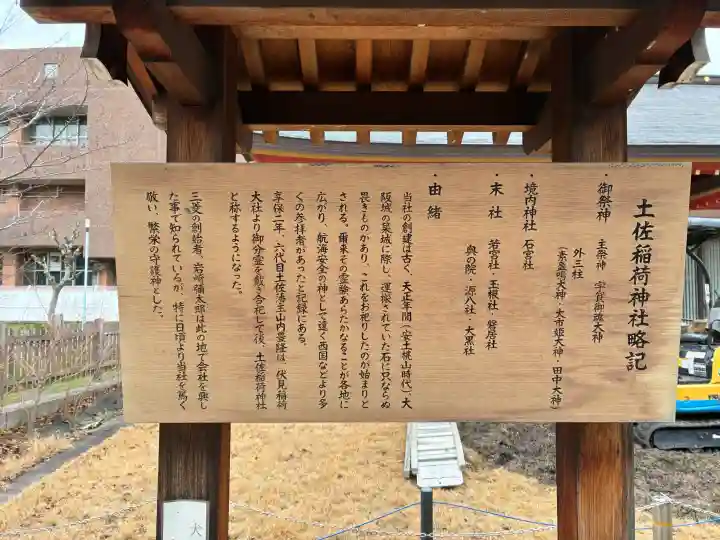 土佐稲荷神社略記
・御祭神　主祭神　宇賀御魂大神
外三柱
（素盞嗚大神・大市姫大神・田中大神）
・境内神社　石宮社
・末社　若宮社・玉根社・磐居社
奥の院・源八社・大黒社
・由緒
当社の創建は古く、天正年間（安土桃山時代）、大
阪城の築城に際し、運搬されていた石に只ならぬ
畏きものかあり、これをお祀りしたのが始まりと
される。爾来その霊験あらたかなることが各地に
広がり、航海安全の神として遠く西国などより多
くの参拝者があったと記録にある。
享保二年、六代目土佐藩主山内豊隆は、伏見稲荷
大社より御分霊を戴き合祀して後、土佐稲荷神社
と称するようになった。
三菱の創始者、岩崎彌太郎は此の地で会社を興し
た事で知られているが、特に日頃より当社を篤く
敬い、繁栄の守護神とした。
犬